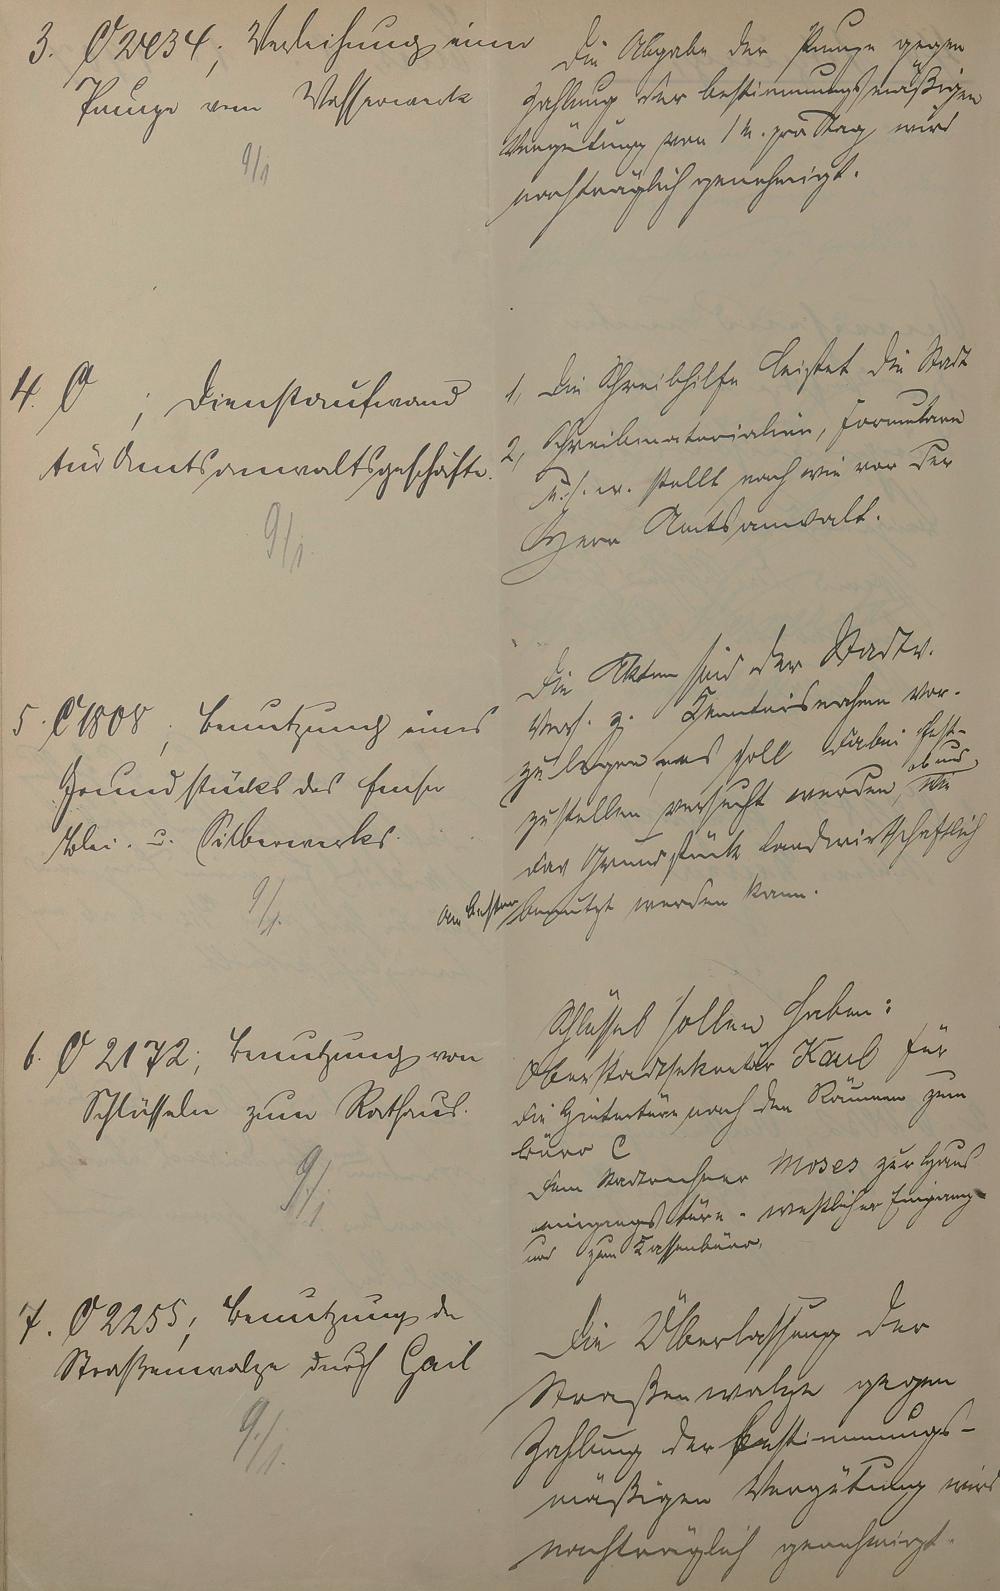 3. O 2434; Verleihung einer
Pumpe vom Wasserwerk
9/1
Die Abgabe der Pumpe gegen
Zahlung der bestimmungsmäßigen
Vergütung von 1 M. pro Tag wird
nachträglich genehmigt.
4. O ; Dienstaufwand
für Amtsanwaltsgeschäfte.
9/1.
1, Die Schreibhilfe leistet die Stadt
2, Schreibmaterialien, Formulare
u.s.w. stellt nach wie vor der
Herr Amtsanwalt.
5. O 1808; Benutzung eines
Grundstücks des Emser
Blei- u. Silberwerks.
9/1.
Die Akten sind der Stadtv.
Vers. z. Kenntnisnahme vor-
zulegen, es soll dabei fest-
zustellen versucht werden, ob und wie
das Grundstück landwirtschaftlich
am besten benutzt werden kann.
6. O 2172; Benutzung von
Schlüsseln zum Rathaus.
9/1
Schlüssel sollen haben:
Oberstadtsekretär Kaul für
die Hintertüre nach den Räumen zum
Büro C
dem Stadtrechner Moses zur Haus
eingangstüre - westlicher Eingang -
und zum Kassenbüro.
7. O 2255; Benutzung der
Straßenwalze durch Gail
9/1.
Die Überlassung der
Straßenwalze gegen
Zahlung der bestimmungs-
mäßigen Vergütung wird
nachträglich genehmigt.